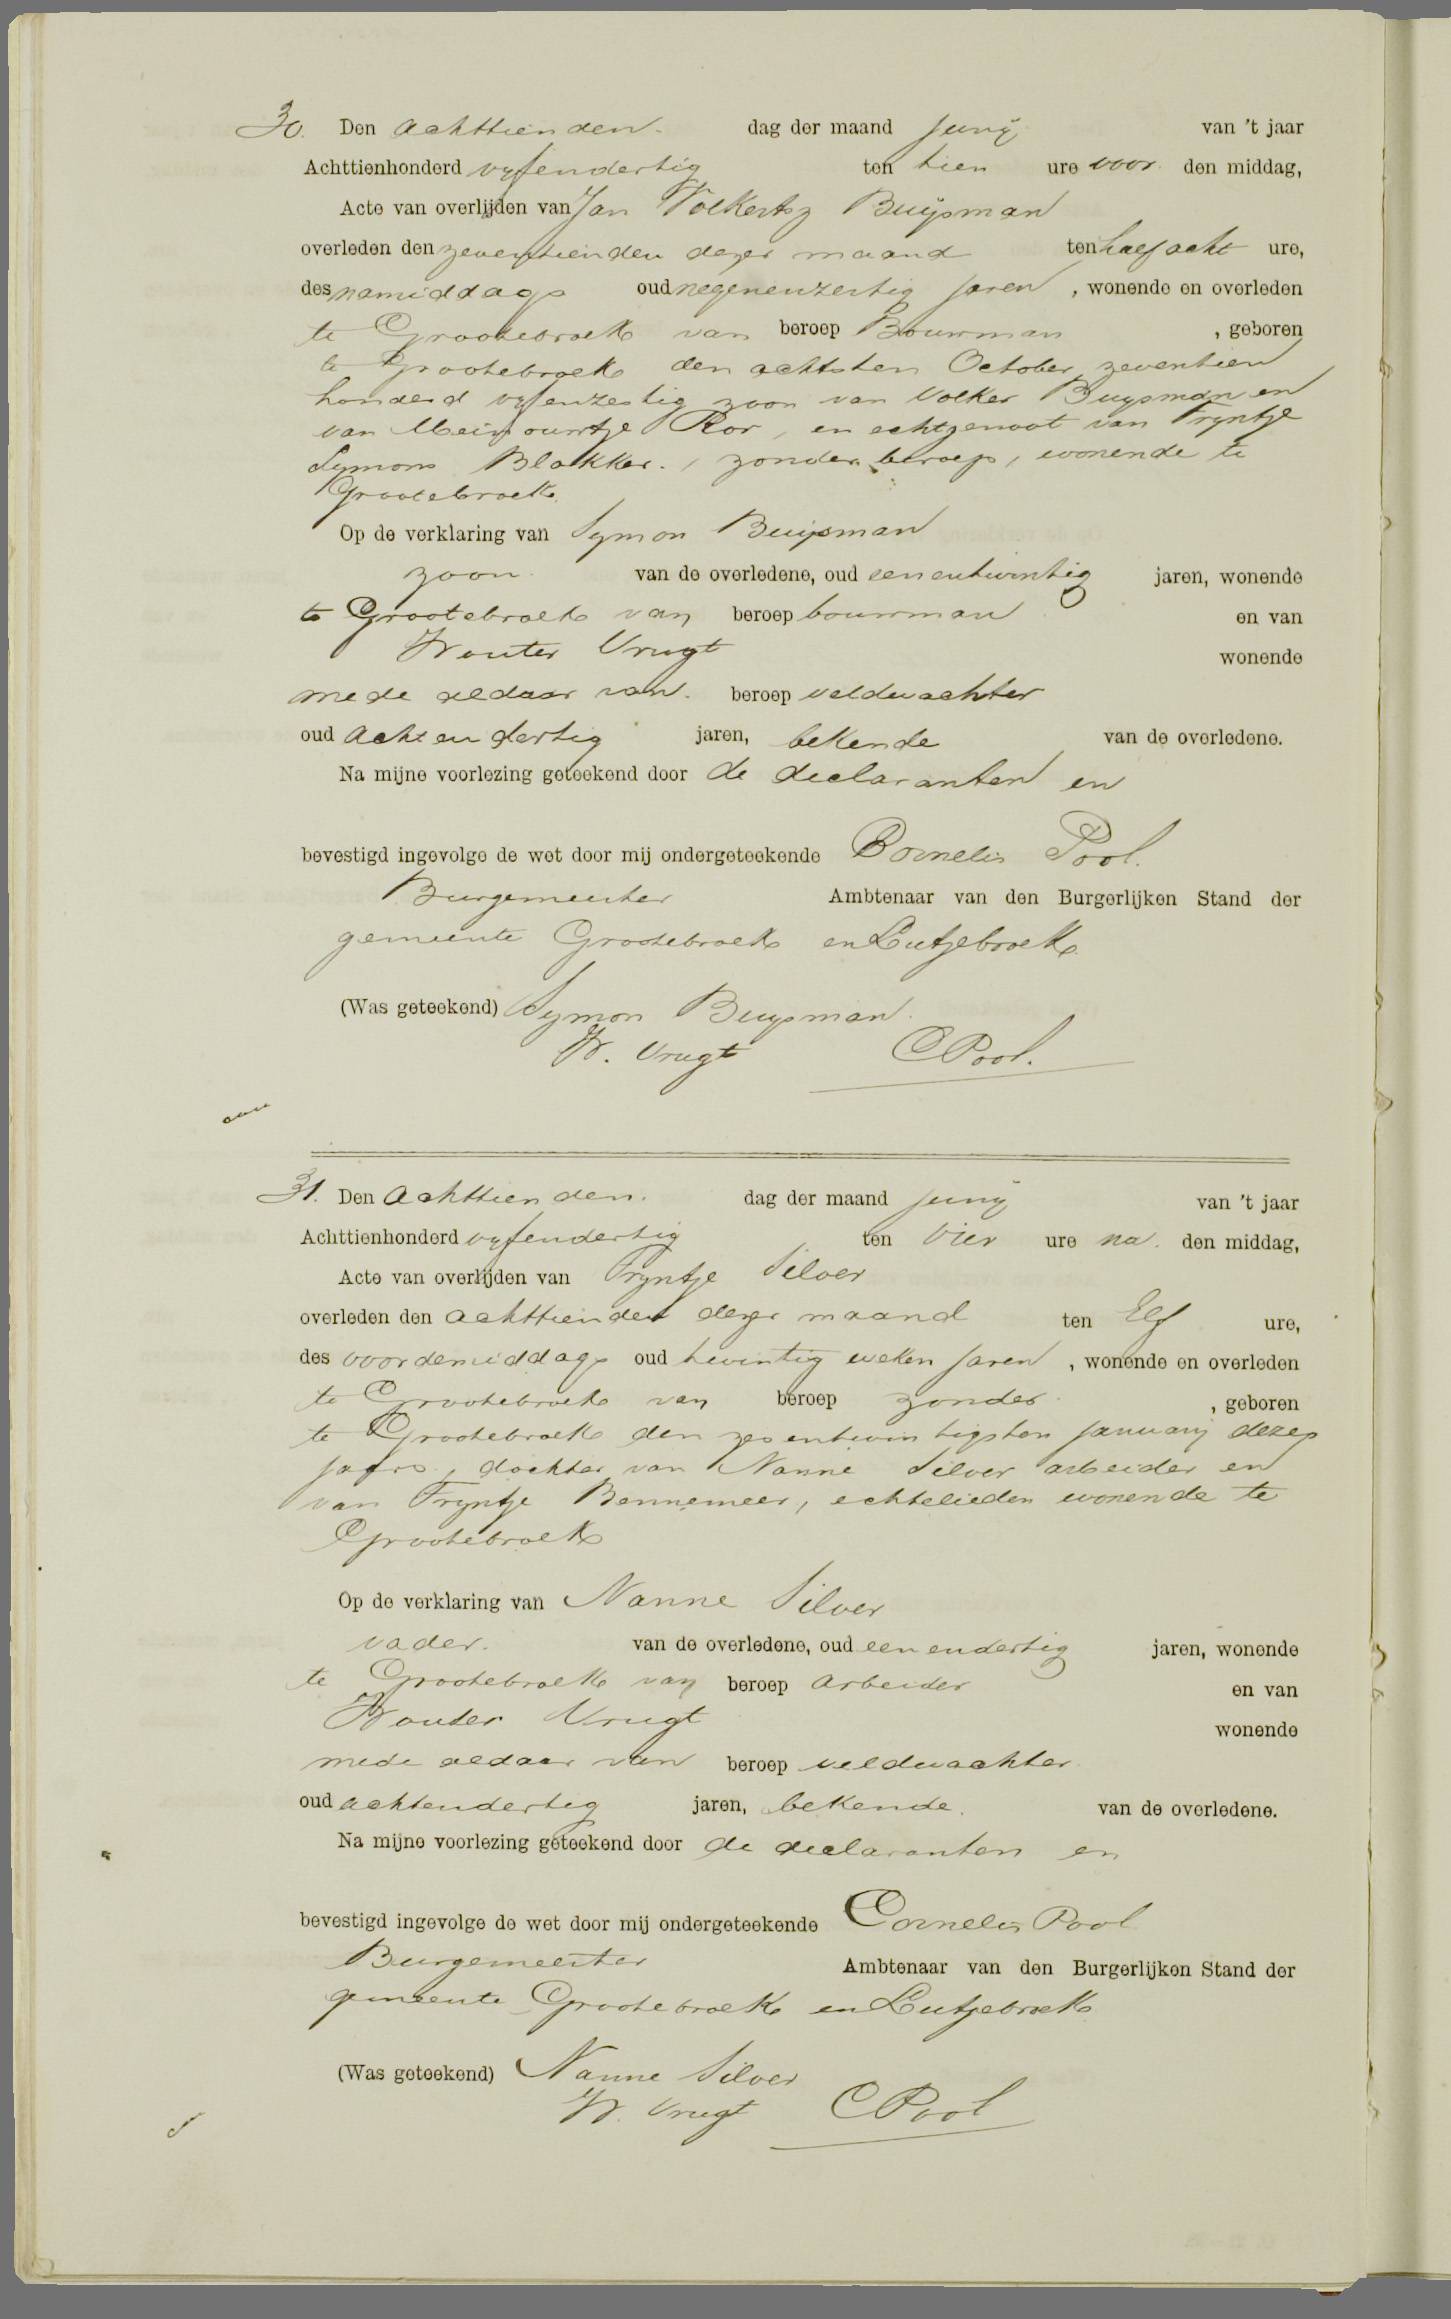 30. Den achttienden. dag der maand Junij van 't jaar
Achttienhonderd vyfendertig ten tien ure voor den middag,
Acte van overlijden van Jan Volkertsz Buijsman
overleden den zeventienden dezer maand ten half acht ure,
des namiddags oud negenenzestig jaren, wonende en overleden
te Grootebroek van beroep Bouwman, geboren
te Grootebroek den achtsten October, zeventien
honderd vyfenzestig zoon van Volker Buysman en
van Kor, en echtgenoot van Tryntje
Symons Blokker., zonder beroep, wonende te
Grootebroek.
Op de verklaring van Symon Buijsman
zoon. van de overledene, oud eenentwintig jaren, wonende
te Grootebroek van beroep bouwman en van
Wouter Vrugt wonende
mede aldaar van. beroep veldwachter
oud achtendertig jaren, bekende van de overledene.
Na mijne voorlezing geteekend door de declaranten en
bevestigd ingevolge de wet door mij ondergeteekende Cornelis Pool.
Burgemeester Ambtenaar van den Burgerlijken Stand der
gemeente Grootebroek en Lutjebroek
(Was geteekend) Symon Buysman.
W. Vrugt C Pool.
31. Den achttienden. dag der maand Junij van 't jaar
Achttienhonderd vyfendertig ten vier ure na. den middag,
Acte van overlijden van Tryntje Silver
overleden den achttienden dezer maand ten Elf ure,
des voordemiddags oud twintig weken jaren, wonende en overleden
te Grootebroek van beroep zonder, geboren
te Grootebroek den zesentwintigsten january dezes
jaars, dochter van Nanne Silver arbeider en
van Tryntje Bennemeer, echtelieden wonende te
Grootebroek
Op de verklaring van Nanne Silver
vader. van de overledene, oud eenendertig jaren, wonende
te Grootebroek van beroep arbeider en van
Wouter Vrugt wonende
mede aldaar van beroep veldwachter
oud achtendertig jaren, bekende. van de overledene.
Na mijne voorlezing geteekend door de declaranten en
bevestigd ingevolge de wet door mij ondergeteekende Cornelis Pool
Burgemeester Ambtenaar van den Burgerlijken Stand der
gemeente Grootebroek en Lutjebroek
(Was geteekend) Nanne Silver
W. Vrugt C Pool